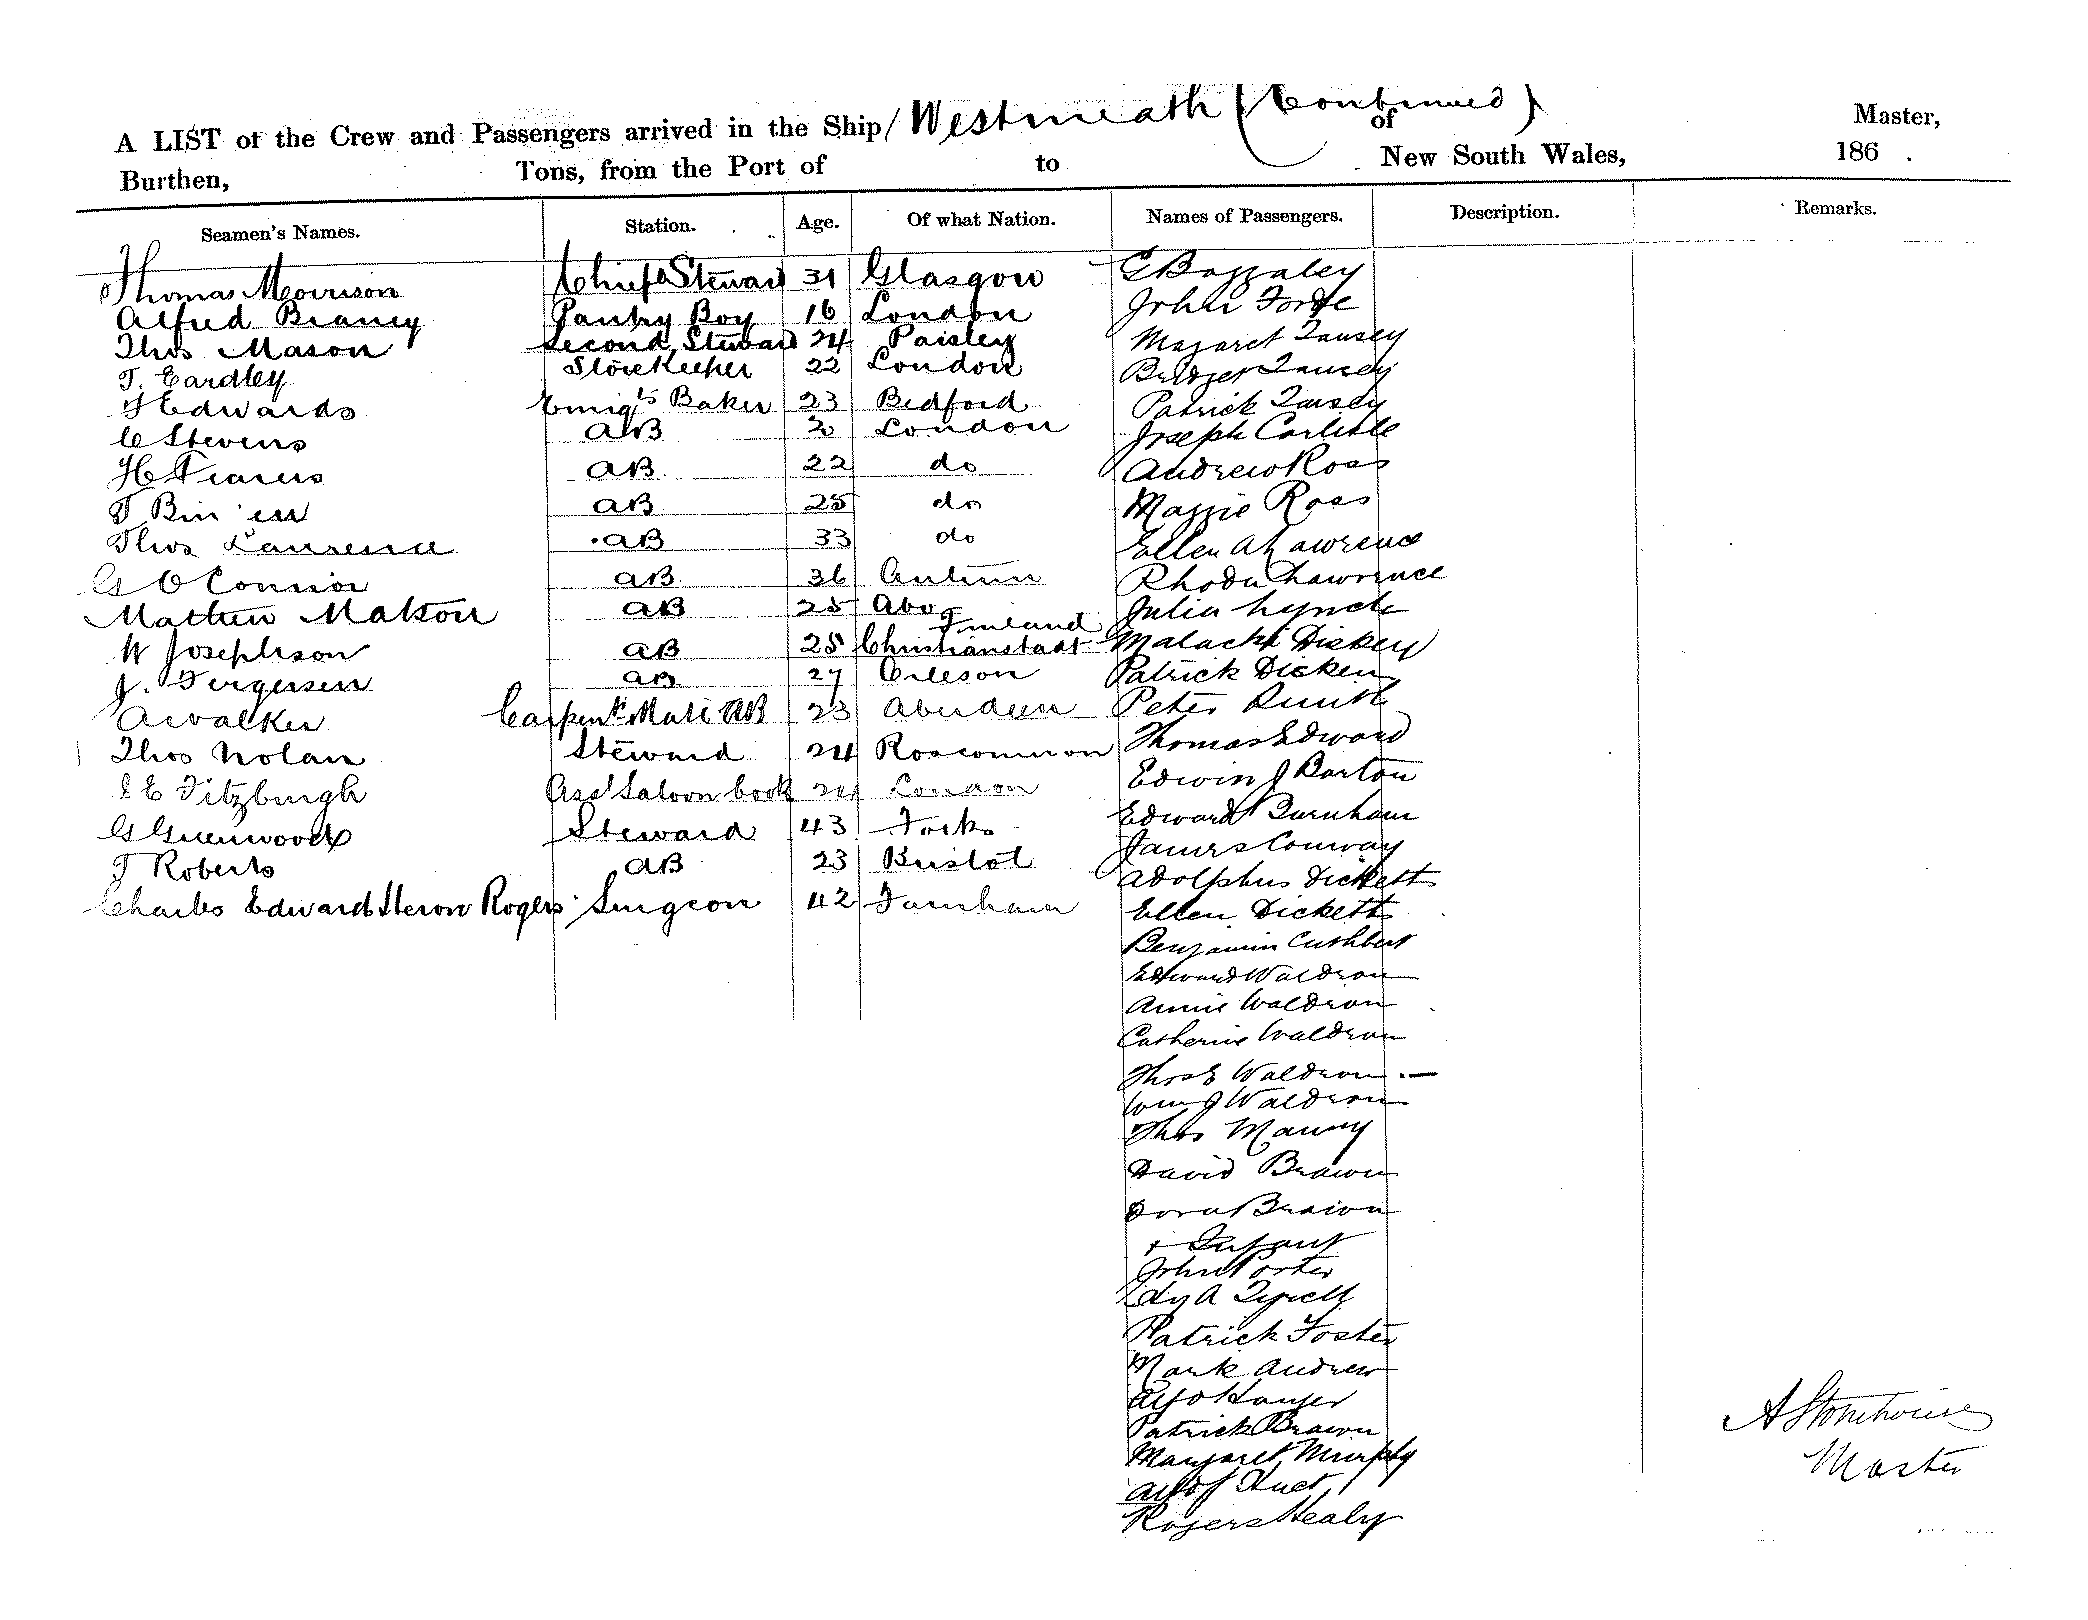 A LIST of the Crew and Passengers arrived in the Ship Westmeath (Continued) of Master,
Burthen, Tons, from the Port of to New South Wales, 186 .
Seamen's Names. Station. Age. Of what Nation. Names of Passengers. Description. Remarks.
Thomas Morrison Chief Steward 31 Glasgow E Bazzaley
Alfred Braney Pantry Boy 16 London John Forde
Thos Mason Second Steward 24 Paisley Magaret Tansey
T. Eardley Storekeeper 22 London Bridget Tansey
Edwards Emigts Baker 23 Bedford Patrick Tansey
C Stevens AB London Joseph Carlisle
H AB 22 do Andrew Ross
T AB 25 do Maggie Ross
Thos Laurence AB 33 do Ellen A Lawrence
G O Connor AB 36 Antrim Rhoda Lawrence
Mathew Matson AB 25 Abo Finland Julia Lynch
W Josephson AB 25 Christianstadt Malachi Dickey
J. Jergersen AB 27 Patrick Dicken
A Walker Carpentr Mate AB 23 Aberdeen Peter
Thos Nolan Steward 24 Roscommon Thomas Edward
E Fitzburgh Asst Saloon Cook 24 London Edwin J Barton
G Greenwood Steward 43 Edward Burnham
T Roberts AB 23 Bristol James Conway
Adolphus Dickett
Charles Edward Heron Rogers Surgeon 42 Farnham Ellen Dickett
Benjamin Cuthbert
Edward Waldron
Annie Waldron
Catherine Waldron
Thos E Waldron
Wm J Waldron
Thos Manny
David Brown
Dora Brown
+ Infant
John Porter
A Tyrell
Patrick Foster
Mark Andrew
Patrick Brown
Margaret Murphy
Rogers Healy
A Stonehouse
Master